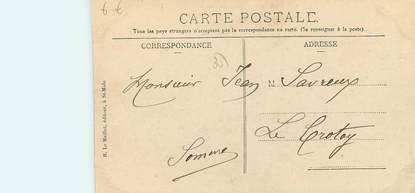 6 €
CARTE POSTALE.
Tous les pays étrangers n'acceptent pas la correspondance au verso. (Se renseigner à la poste).
CORRESPONDANCE
ADRESSE
Monsieur Jean M Savreux
Le Crotoy
Somme